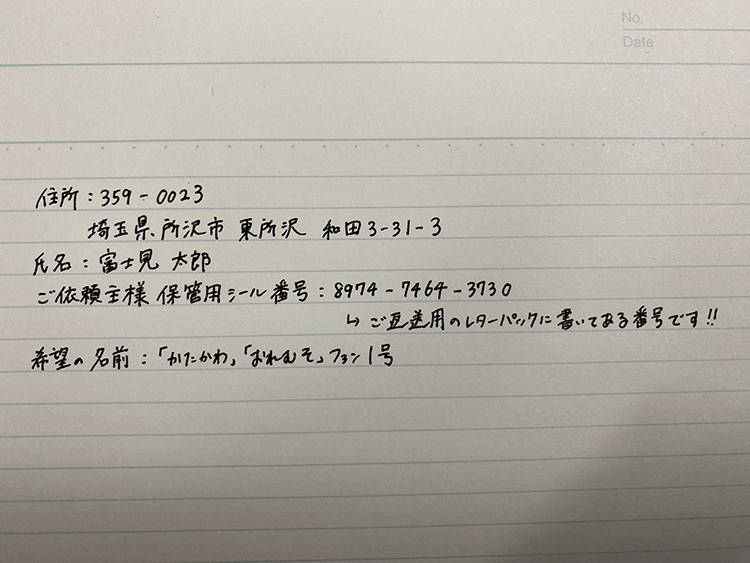 No.
Date
住所：359-0023
埼玉県所沢市 東所沢 和田3-31-3
氏名：富士見 太郎
ご依頼主様 保管用シール番号：8974-7464-3730
↳ ご返送用のレターパックに書いてある番号です!!
希望の名前：「かたかわ」「おれむそ」ファン1号